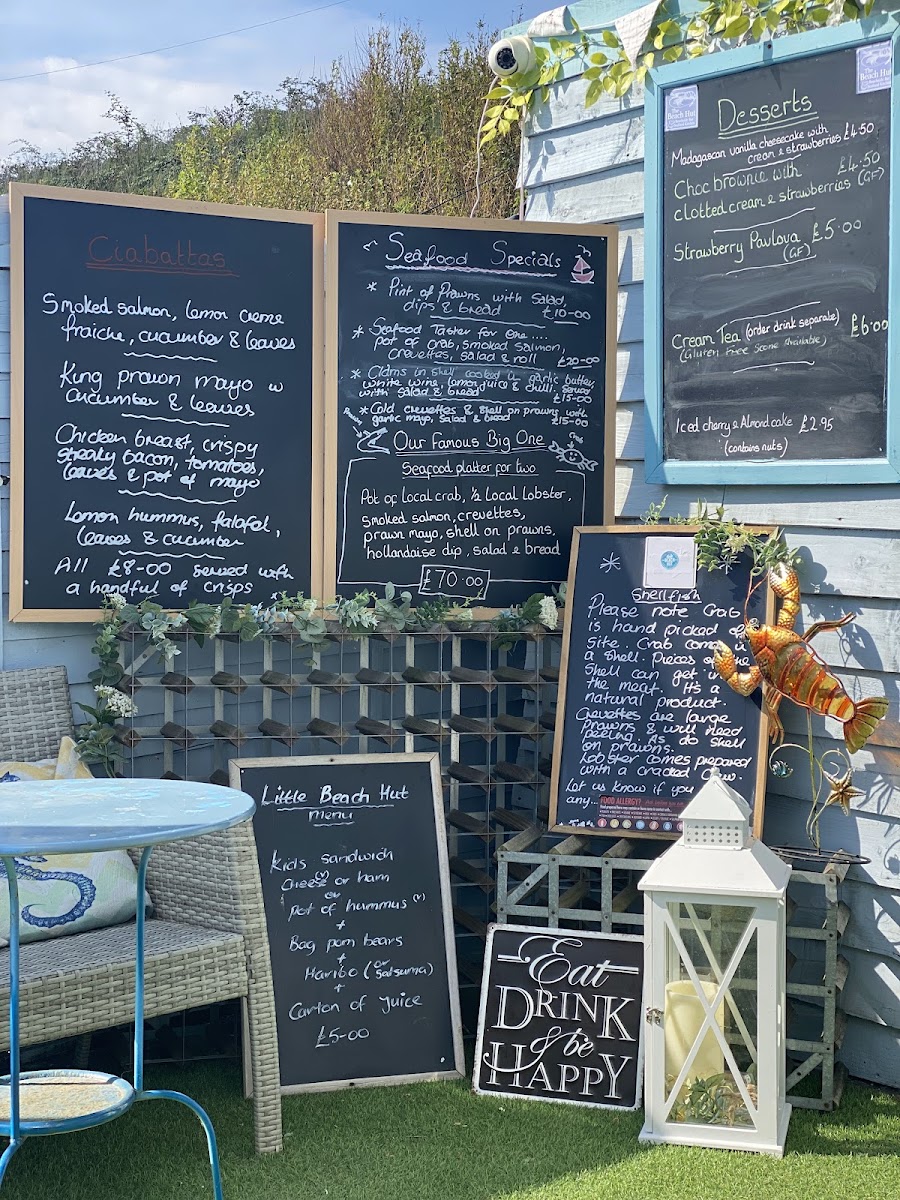 Ciabattas
Smoked salmon, lemon creme
fraiche, cucumber & leaves
King prawn mayo w
cucumber & leaves
Chicken breast, crispy
streaky bacon, tomatoes,
leaves & pot of mayo
Lemon hummus, falafel,
leaves & cucumber
All £8-00 served with
a handful of crisps
Seafood Specials
* Pint of Prawns with salad,
dips & bread £10-00
* Seafood Taster for one ....
pot of crab, smoked salmon,
crevettes, salad & roll
£20-00
* Clams in shell cooked in garlic butter,
white wine, lemon juice & chilli. Served
with salad & bread £15-00
* Cold crevettes & shell on prawns with
garlic mayo, salad & bread £15-00
Our Famous Big One
Seafood platter for two
Pot of local crab, ½ Local Lobster,
smoked salmon, crevettes,
prawn mayo, shell on prawns,
hollandaise dip, salad & bread
£70.00
The
Beach Hut
The
Beach Hut
Desserts
Madagascan vanilla cheesecake with
cream & strawberries £4.50
Choc brownie with £4.50
clotted cream & strawberries (GF)
Strawberry Pavlova £5.00
(GF)
Cream Tea (order drink separate) £6.00
(Gluten free Scone Available)
Iced cherry & Almond cake £2.95
(contains nuts)
Shellfish
Please note Crab
is hand picked
site. Crab comes in
a shell. Pieces of the
Shell can get in
the meat. It's a
natural product.
Crevettes are large
prawns & will need
peeling. As do shell
on prawns.
Lobster comes prepared
with a cracked Claw.
Let us know if you
any...
FOOD ALLERGY?
Little Beach Hut
menu
Kids sandwich
Cheese or ham
or
Pot of hummus (v)
+
Bag pom bears
+
Haribo (or Satsuma)
+
Carton of Juice
£5-00
Eat
DRINK
& be
HAPPY